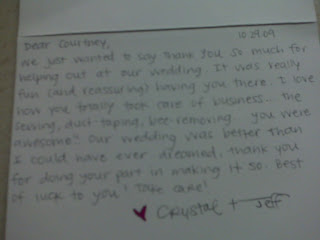 Dear Courtney, 10.29.09
We just wanted to say thank you so much for
helping out at our wedding. It was really
fun (and reassuring) having you there. I love
how you totally took care of business... the
sewing, duct-taping, bee-removing. you were
awesome! Our wedding was better than
I could have ever dreamed, thank you
for doing your part in making it so. Best
of luck to you! Take care!
♥ Crystal + Jeff